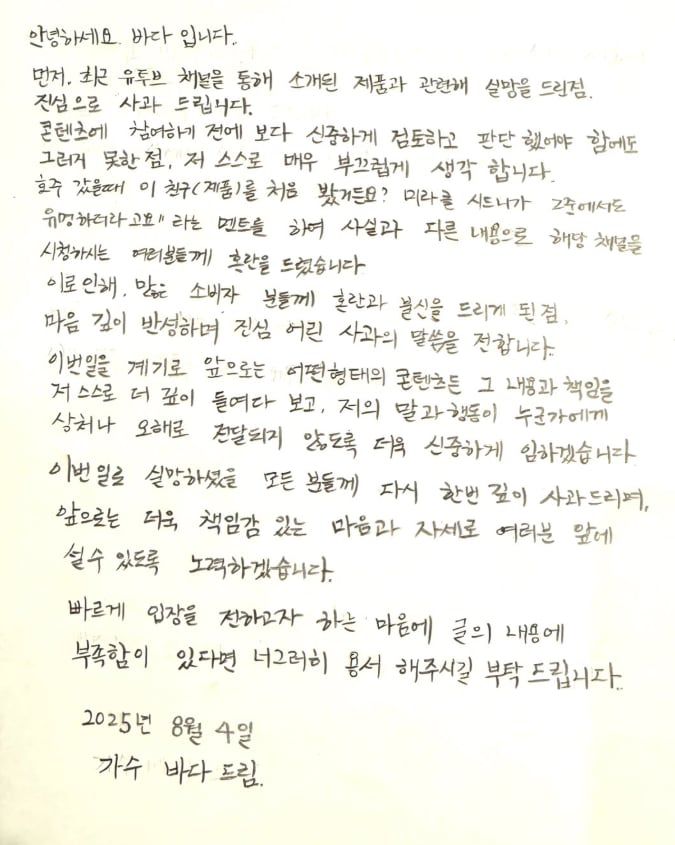 안녕하세요. 바다 입니다.
먼저, 최근 유투브 채널을 통해 소개된 제품과 관련해 실망을 드린점.
진심으로 사과 드립니다.
콘텐츠에 참여하기 전에 보다 신중하게 검토하고 판단 했어야 함에도
그러지 못한 점, 저 스스로 매우 부끄럽게 생각 합니다.
호주 갔을때 이 친구(제품)를 처음 봤거든요? 미라클 시드니가 고준에서도
유명하더라고요" 라는 멘트를 하여 사실과 다른 내용으로 해당 채널을
시청하시는 여러분들께 혼란을 드렸습니다
이로인해, 많은 소비자 분들께 혼란과 불신을 드리게 된 점,
마음 깊이 반성하며 진심 어린 사과의 말씀을 전합니다.
이번일을 계기로 앞으로는 어떤형태의 콘텐츠든 그 내용과 책임을
저 스스로 더 깊이 들여다 보고, 저의 말과 행동이 누군가에게
상처나 오해로 전달되지 않도록 더욱 신중하게 임하겠습니다
이번 일로 실망하셨을 모든 분들께 다시 한번 깊이 사과드리며,
앞으로는 더욱 책임감 있는 마음과 자세로 여러분 앞에
설수 있도록 노력하겠습니다.
빠르게 입장을 전하고자 하는 마음에 글의 내용에
부족함이 있다면 너그러히 용서 해주시길 부탁 드립니다.
2025년 8월 4일
가수 바다 드림.